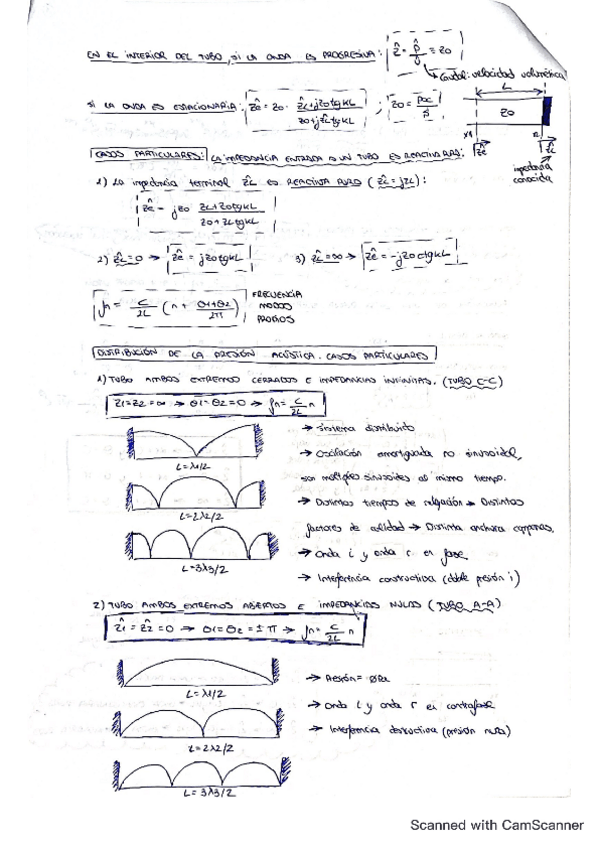 EN EL INTERIOR DEL TUBO, SI LA ONDA ES PROGRESIVA: Ẑ = p̂/Û = Z0
↳ Caudal: velocidad volumétrica
SI LA ONDA ES ESTACIONARIA: Ẑe = Z0 · (ẐL + jZ0tgKL)/(Z0 + jẐLtgKL) ; Z0 = ρoc/S
L
Z0
impedancia
conocida
CASOS PARTICULARES: LA IMPEDANCIA ENTRADA A UN TUBO ES REACTIVA PURA.
1) La impedancia terminal ẐL ES REACTIVA PURA (ẐL = jZL):
Ẑe = jZ0 (ZL + Z0tgKL)/(Z0 + ZLtgKL)
2) ẐL = 0 → Ẑe = jZ0tgKL
3) ẐL = ∞ → Ẑe = -jZ0ctgKL
fn = C/2L (n + (θ1+θ2)/2π)
FRECUENCIA
MODOS
PROPIOS
DISTRIBUCIÓN DE LA PRESIÓN ACÚSTICA. CASOS PARTICULARES
1) TUBO AMBOS EXTREMOS CERRADOS E IMPEDANCIAS INFINITAS. (TUBO C-C)
Z1 = Z2 = ∞ → θ1 = θ2 = 0 → fn = C/2L n
→ Sistema distribuido
→ Oscilación amortiguada no sinusoidal,
L = λ1/2
son múltiples sinusoides al mismo tiempo.
→ Distintos tiempos de relajación → Distintos
L = 2λ2/2
factores de calidad → Distinta anchura campanas.
→ Onda i y onda r en fase
L = 3λ3/2
→ Interferencia constructiva (doble presión i)
2) TUBO AMBOS EXTREMOS ABIERTOS E IMPEDANCIAS NULAS (TUBO A-A)
Ẑ1 = Ẑ2 = 0 → θ1 = θ2 = ±π → fn = C/2L n
→ Presión = 0Pa
L = λ1/2
→ Onda i y onda r en contrafase
→ Interferencia destructiva (presión nula)
L = 2λ2/2
L = 3λ3/2
Scanned with CamScanner